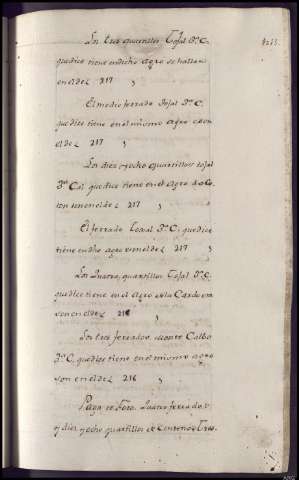 Los tres quartillos Tojal 3.ª C.
quedice tiene endicho agro se hallan
en el de £ 217
El medio ferrado Tojal 3.ª C.
que dice tiene en el mismo agro es en
el de £ 217
Los diez y ocho quartillos tojal
3.ª Cal. que dice tiene en el Agro de
son en el de £ 217
El ferrado Tojal 3.ª C. que dice
tiene en dho agro es en el de £ 217
Los Quatro quartillos Tojal 3.ª C.
que dice tiene en el Agro de la
son en el de £ 218
Los tres ferrados monte Calbo
3.ª C. que dice tiene en el mismo agro
son en el de £ 218
Paga de Foro Quatro ferrados
y diez y ocho quartillos de Centeno